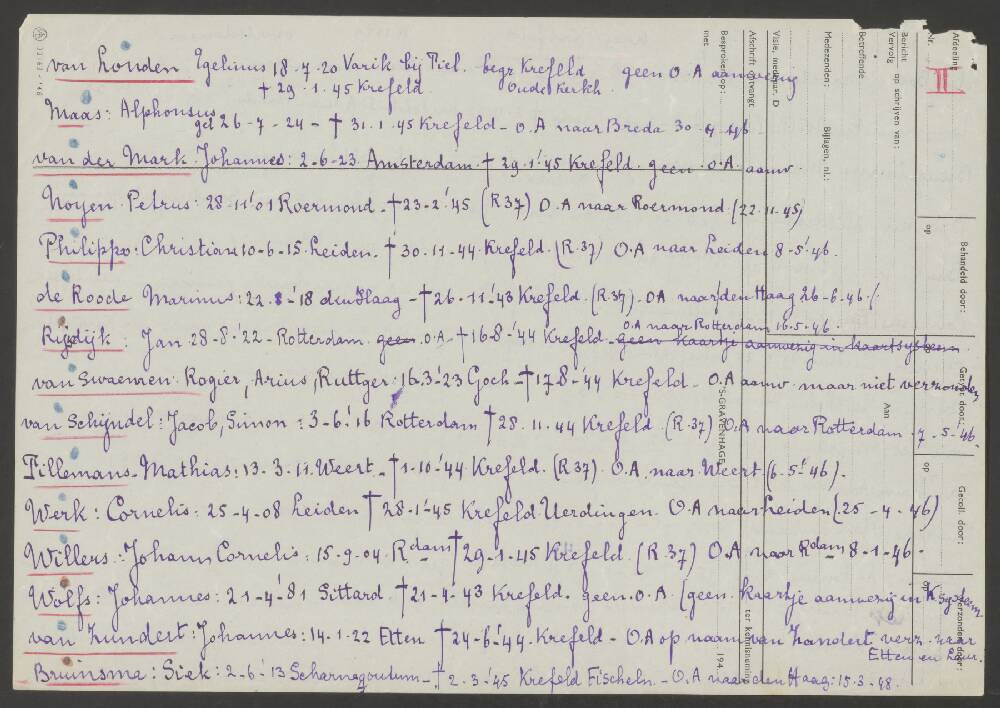 van Londen Egelinus 18.7.20 Varik bij Tiel. begr Krefeld geen O.A aanwezig
+ 29.1.45 Krefeld Oude Kerkh
Maas: Alphonsus
geb 26-7-24 - † 31.1.45 Krefeld - O.A naar Breda 30.4.46
van der Mark Johannes: 2-6-23 Amsterdam † 29.1.'45 Krefeld. geen O.A. aanw.
Noyen Petrus: 28-11-'01 Roermond - † 23-2-'45 (R 37) O.A naar Roermond (22.11.45)
Philippo: Christiaan 10-6-15 Leiden. † 30.11-44 Krefeld. (R.37) O.A naar Leiden 8-5-'46.
de Roode Marinus: 22.8-'18 den Haag - † 26.11.'43 Krefeld. (R.37) - OA naar den Haag 26-6-46.
O.A naar Rotterdam 16.5.46.
Rijsdijk: Jan 28-8-'22 - Rotterdam geen O.A - † 16-8-'44 Krefeld - geen kaartje aanwezig in kaartsysteem
van Swaenen: Rogier, Arius, Ruttger: 16.3-'23 Goch - † 17-8-'44 Krefeld - O.A aanw. maar niet verzonden
van Schijndel: Jacob, Simon: 3-6-'16 Rotterdam † 28.11.44 Krefeld. (R.37) O.A naar Rotterdam 7-5-'46.
Tillemans - Mathias: 13.3.11. Weert - † 1-10-'44 Krefeld. (R37) O.A. naar Weert (6.5-'46).
Werk: Cornelis: 25-4-08 Leiden † 28-1-'45 Krefeld Uerdingen. O.A naar Leiden (25-4-46)
Willers: Johann Cornelis: 15-9-04. Rdam † 29-1-45 Krefeld. (R.37) O.A naar Rdam 8-1-46.
Wolfs: Johannes: 21-4-'81 Sittard † 21-4-43 Krefeld. geen O.A (geen kaartje aanwezig in K.systeem.
van Hundert: Johannes: 14.1.22 Etten † 24-6-'44 - Krefeld - O.A op naam van Handert verz. naar
Etten en Leur.
Bruinsma: Siek: 2-6-'13 Scharnegoutum - † 2.3-'45 Krefeld Fischeln. - O.A naar den Haag: 15.3.48.
Afdeeling
Nr.
II
Bericht op schrijven van:
Vervolg
Betreffende
Mededeelingen:
Bijlagen, nl.:
Visie, medepar. D
Afschrift ontvangt
ter kennisneming
Besproken op:
met
Behandeld door:
op
Getypt door:
op
Gecoll. door:
op
Verzonden door:
Aan
'S-GRAVENHAGE,
194